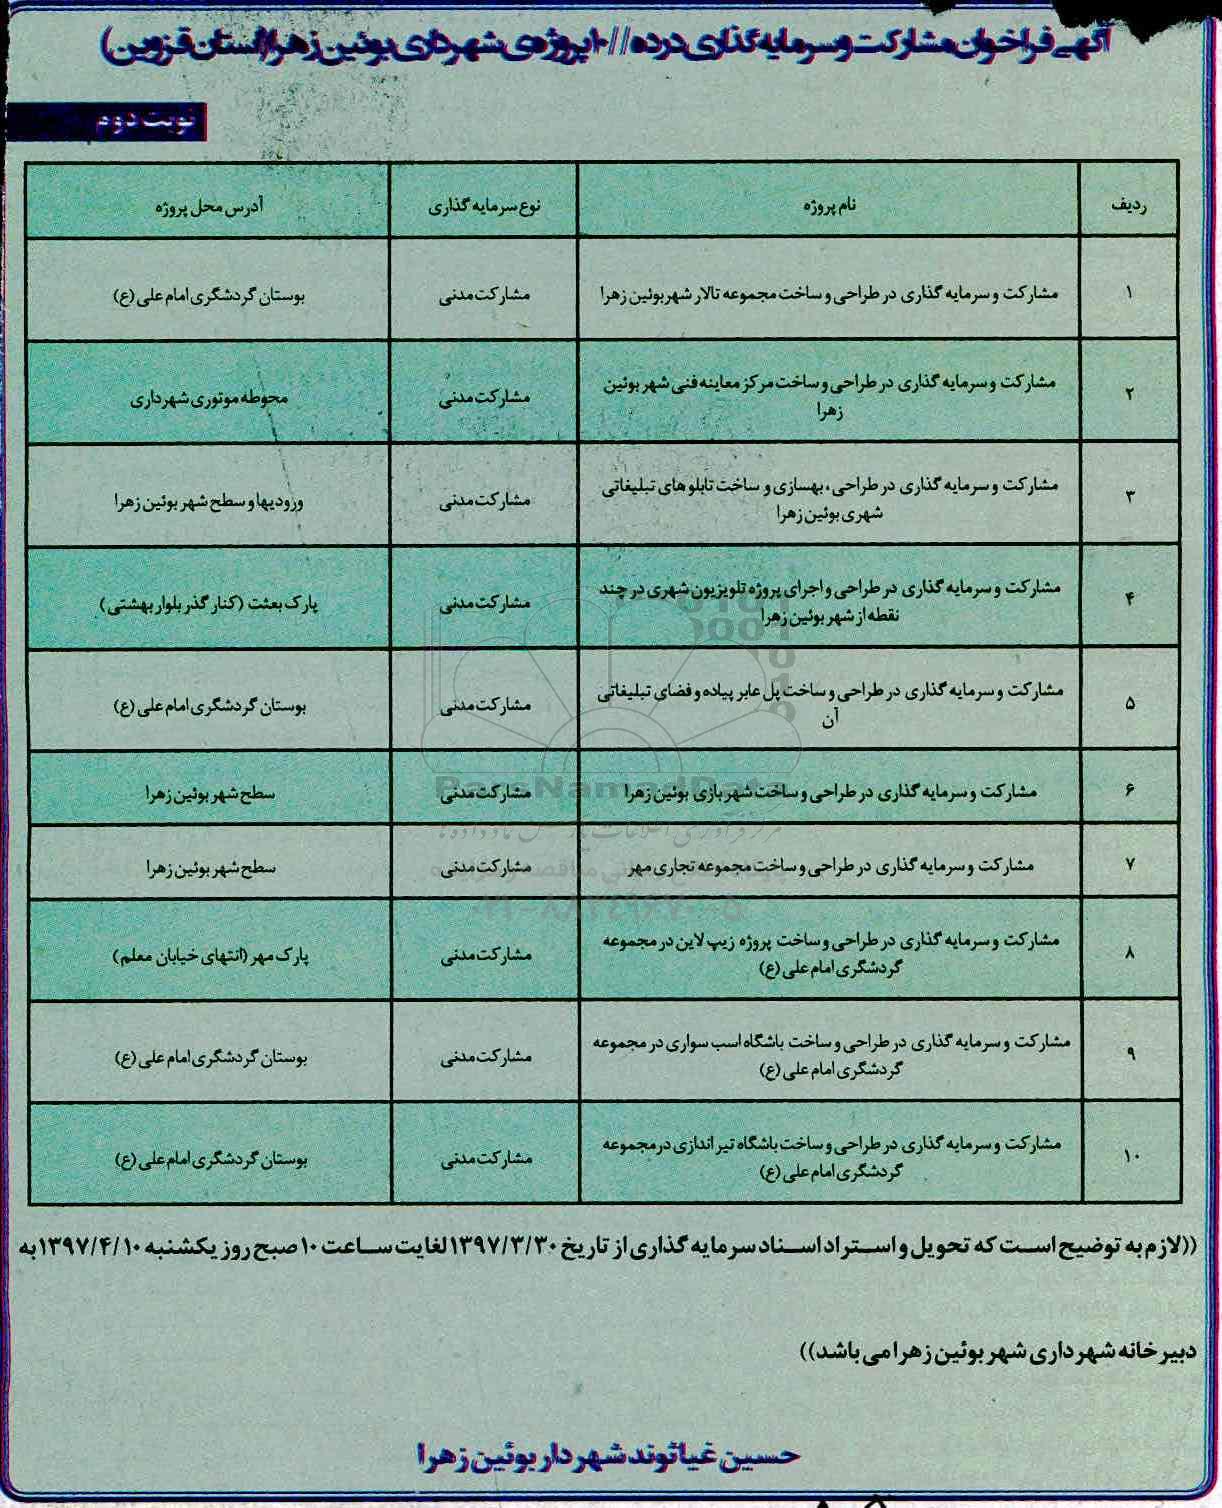 آگهی فراخوان مشارکت و سرمایه گذاری در ده //۱۰ پروژه ی شهرداری بوئین زهرا (استان قزوین)
نوبت دوم
ردیف نام پروژه نوع سرمایه گذاری آدرس محل پروژه
۱ مشارکت و سرمایه گذاری در طراحی و ساخت مجموعه تالار شهر بوئین زهرا مشارکت مدنی بوستان گردشگری امام علی (ع)
۲ مشارکت و سرمایه گذاری در طراحی و ساخت مرکز معاینه فنی شهر بوئین
زهرا مشارکت مدنی محوطه موتوری شهرداری
۳ مشارکت و سرمایه گذاری در طراحی، بهسازی و ساخت تابلوهای تبلیغاتی
شهری بوئین زهرا مشارکت مدنی ورودیها و سطح شهر بوئین زهرا
۴ مشارکت و سرمایه گذاری در طراحی و اجرای پروژه تلویزیون شهری در چند
نقطه از شهر بوئین زهرا مشارکت مدنی پارک بعثت (کنار گذر بلوار بهشتی)
۵ مشارکت و سرمایه گذاری در طراحی و ساخت پل عابر پیاده و فضای تبلیغاتی
آن مشارکت مدنی بوستان گردشگری امام علی (ع)
۶ مشارکت و سرمایه گذاری در طراحی و ساخت شهربازی بوئین زهرا مشارکت مدنی سطح شهر بوئین زهرا
۷ مشارکت و سرمایه گذاری در طراحی و ساخت مجموعه تجاری مهر مشارکت مدنی سطح شهر بوئین زهرا
۸ مشارکت و سرمایه گذاری در طراحی و ساخت پروژه زیپ لاین در مجموعه
گردشگری امام علی (ع) مشارکت مدنی پارک مهر (انتهای خیابان معلم)
۹ مشارکت و سرمایه گذاری در طراحی و ساخت باشگاه اسب سواری در مجموعه
گردشگری امام علی (ع) مشارکت مدنی بوستان گردشگری امام علی (ع)
۱۰ مشارکت و سرمایه گذاری در طراحی و ساخت باشگاه تیراندازی در مجموعه
گردشگری امام علی (ع) مشارکت مدنی بوستان گردشگری امام علی (ع)
ParsNamadData
((لازم به توضیح است که تحویل و استراد اسناد سرمایه گذاری از تاریخ ۱۳۹۷/۳/۳۰ لغایت ساعت ۱۰ صبح روز یکشنبه ۱۳۹۷/۴/۱۰ به
دبیرخانه شهرداری شهر بوئین زهرا می باشد))
حسین غیاثوند شهردار بوئین زهرا